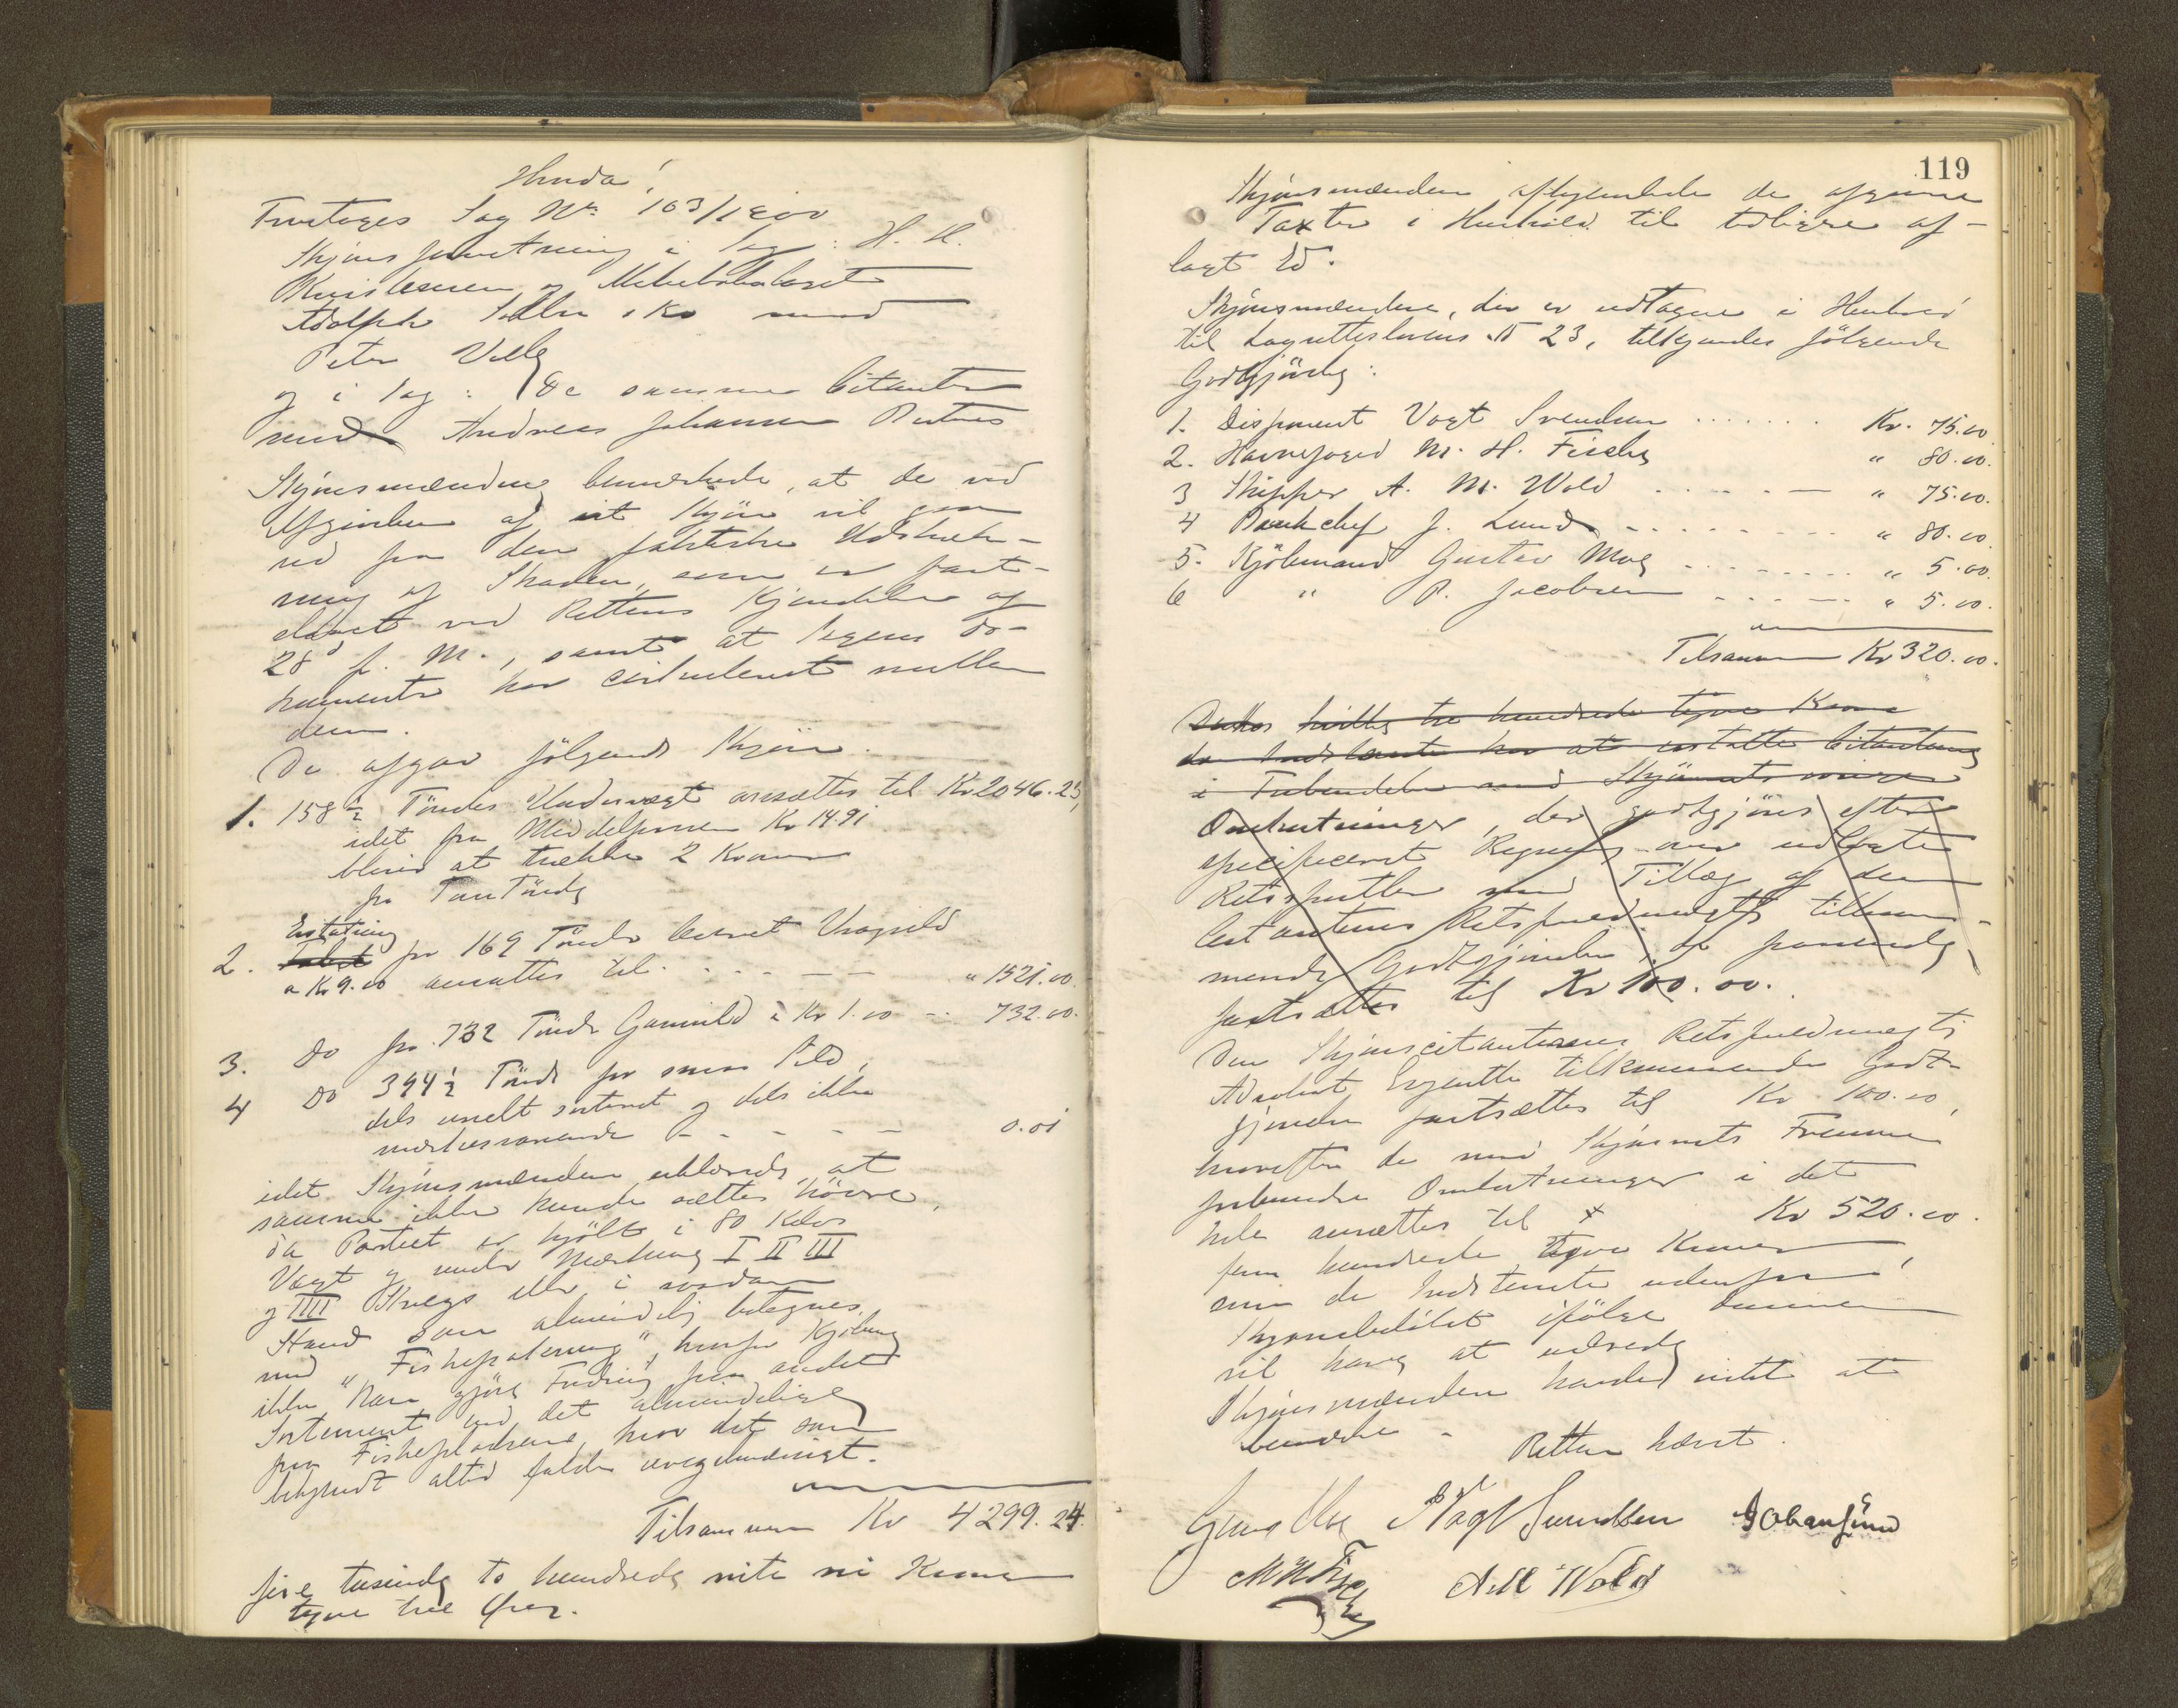 Hvorda!
Foretoges Sag No 103/1900
Skjønsforretning i Sag: H. H.
Kristensen og Aktiebolaget
Adolph &Ko mod
Peter Velle
og i Sag: De samme Citanter
mod Andreas Johansen Rutnes
Skjønsmændene bemærkede, at de ved
Afgivelsen af sit Skjøn vil gaa
ud fra den faktiske Udstræk-
ning af Skaden, som er fast-
slaaet ved Rettens Kjendelse af
28d f. M., samt at Sagens Do-
kumenter har cirkuleret mellem
dem.
De afgav følgende Skjøn.
1. 158½ Tønder Undervægt ansættes til Kr 2046.23,
idet fra Middelprisen Kr 14.91
bliver at trække 2 Kroner
for Tom Tønde
Erstatning
2. Tabet for 169 Tønder beregnet Vragsild
a Kr 9.00 ansættes til . . . . — — " 1521.00.
3. Do for 732 Tønder Gammelsild à Kr 1.00 — . 732.00.
4 Do 394½ Tønde for smaa Sild,
dels uselt sorteret og dels ikke
mærkesvarende — - - - — 0.01
idet Skjønsmændene erklærede, at
samme ikke kunde sættes høiere,
da Partiet er kjøbt i 80 Kilos
Vægt og under Mærkning I II III
og IIII Stregs eller i saadan
Stand som almindelig betegnes
med "Fiskepakning", hvorfor Kjøberen
ikke kan gjøre Fordring paa andet
Sortement end det almindelige
paa Fiskepladsene, hvor det som
bekjendt altid falder uregelmæssigt.
Tilsammen Kr 4299.24.
fire tusinde to hundrede niti ni Kroner
tyve fire Ører.
119
Skjønsmændene afhjemlede de afgivne
Taxter i Henhold til tidligere af-
lagt Ed.
Skjønsmændene, der er udtagne i Henhold
til Lagretteslovens § 23, tilkjendes følgende
Godtgjørelse:
1. Disponent Vogt Svendsen . . . . . . . Kr. 75.00
2. Havnefoged M. H. Fischer " 80.00.
3 Skipper A. M. Wold . . . . . — " 75.00.
4 Bankchef J. Lund - . . . . - - - - " 80.00
5. Kjøbmand Gustav Moe . . . . . . . . " 5.00.
6 " P. Jacobsen - - - - — " 5.00.
Tilsammen Kr 320.00.
hvilke tre hundrede tyve Kroner
de Indstævnte har at erstatte Citanterne
i Forbindelse med Skjønnets øvrige
Omkostninger, der godtgjøres efter
specificeret Regning over udlagte
Retssportler med Tillæg af den
Citanternes Retsfuldmægtig tilkom-
mende Godtgjørelse, der passende
fastsættes til Kr 100.00.
Den Skjønscitanternes Retsfuldmægtig
Advokat tilkommende Godt-
gjørelse fastsættes til Kr 100.00,
hvorefter de med Skjønnets Fremme
forbundne Omkostninger i det
hele ansættes til x Kr 520.00.
fem hundrede tyve Kroner,
som de Indstevnte udenfor
Skjønsbeløbet ifølge denne
vil have at udrede
Skjønsmændene havde intet at
bemærke - Retten hævet.
Gust Moe S Vogt Svendsen Johan Lund
M H Fischer A M Wold